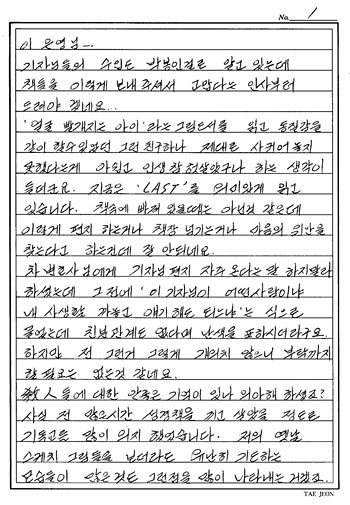 No. 1
이 은영님 -.
기자님들의 수입도 박봉인걸로 알고 있는데
책들을 이렇게 보내 주셔서 고맙다는 인사부터
드려야 겠네요...
'얼굴 빨개지는 아이'라는 그림도서를 읽고 동질감을
같이 할수있었던 그런 친구하나 제대로 사귀어 놓지
못했다는게 아쉽고 인생 참 헛살았구나 하는 생각이
들더군요. 지금은 'LAST'를 재미있게 읽고
있습니다. 책속에 빠져 있을때는 아닌것 같은데
이렇게 편지 하는거나 책장 넘기는거나 마음의 위안을
찾는다고 하는건데 잘 안되네요.
차변호사님에게 기자님 편지 자주 온다는 말 하지말라
하셨는데 그전에 '이 기자님이 어떤사람이냐
내 사생활 까놓고 얘기해도 되느냐'는 식으로
물었는데 친분관계도 없다며 난색을 표하시더라구요.
하지만 전 그런거 그렇게 개의치 않으니 부탁까지
할 필요는 없는것 같네요.
敎人들에 대한 안좋은 기억이 있나 의아해 하셨죠?
사실 전 많은시간 성경책을 끼고 살았을 정도로
기독교를 많이 의지 했었습니다. 저의 옛날
스케치 그림들을 보더라도 유난히 기도하는
모습들이 많은것도 그런점을 많이 나타내는 거겠죠.
TAE JEON